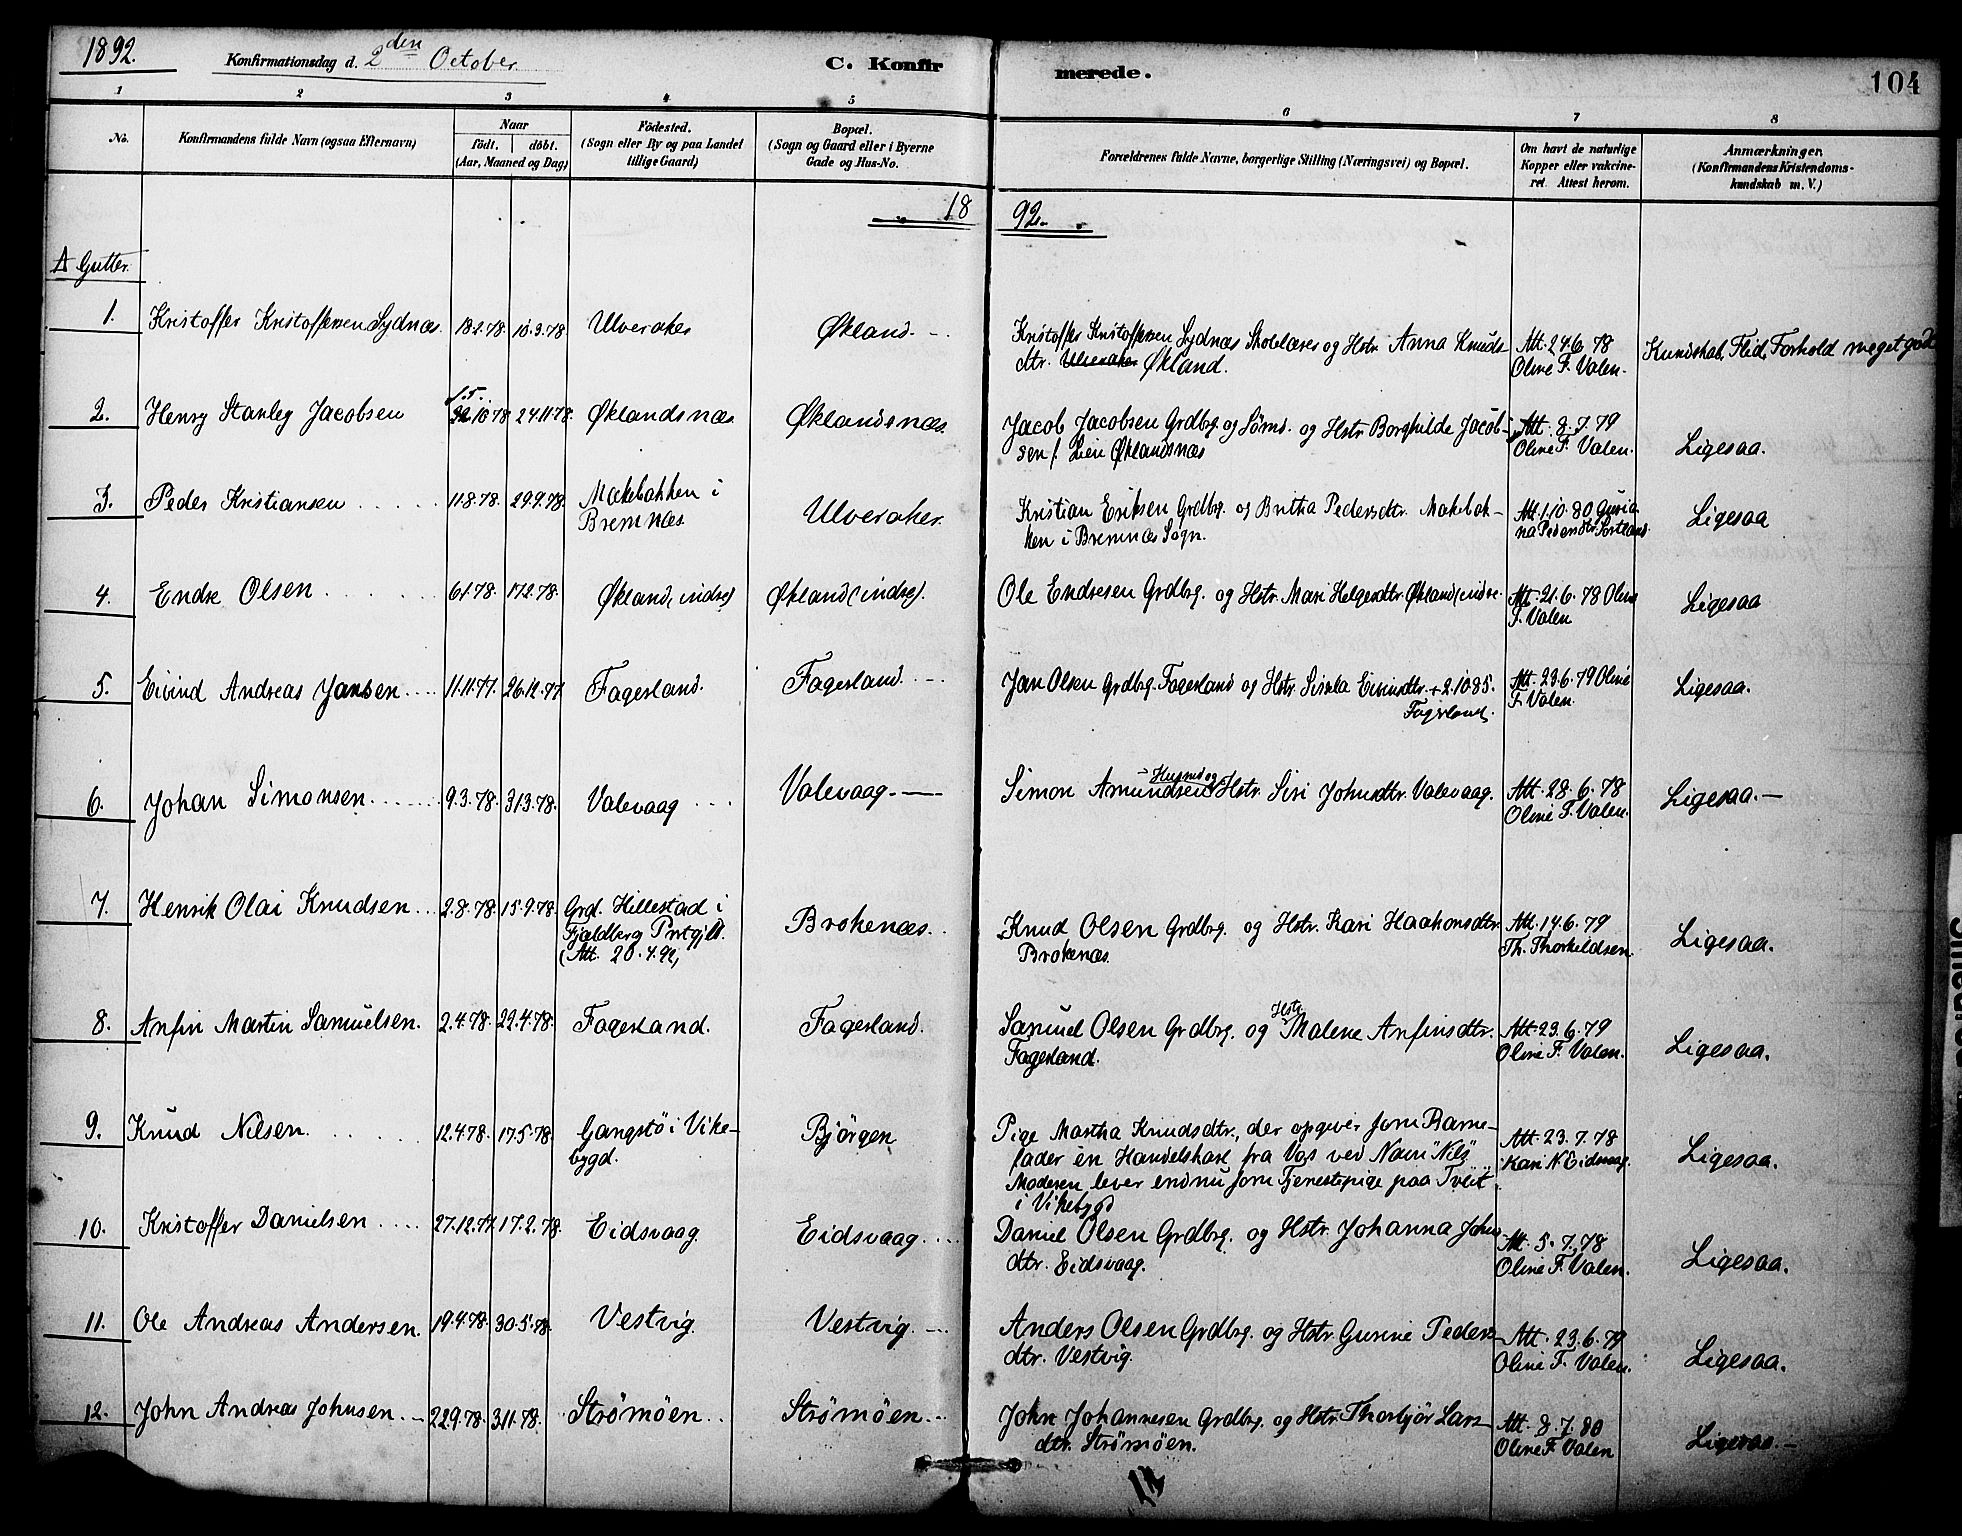 1892. Konfirmationsdag d. 2den October. C. Konfirmerede. 104
1 2 3 4 5 6 7 8
No. Konfirmandens fulde Navn (ogsaa Efternavn) Naar födt. döbt. (Aar, Maaned og Dag)
Födested. (Sogn eller By og paa Landet tillige Gaard)
Bopæl. (Sogn og Gaard eller i Byerne Gade og Hus-No.
Forældrenes fulde Navne, borgerlige Stilling (Næringsvei) og Bopæl.
Om havt de naturlige Kopper eller vakcineret. Attest herom.
Anmærkninger. (Konfirmandens Kristendomskundskab m. V.)
1892.
A Gutter.
1. Kristoffer Kristoffersen Sydnæs. 18.2.78. 10.3.78 Ulveraker Økland. Kristoffer Kristoffersen Sydnæs Skolelærer og Hstr. Anna Knuds- Att. 24.6.78 Kundskab, Flid, Forhold meget god
dtr. Ulveraker Økland. Oline F. Valen.
2. Henry Stanley Jacobsen 15. 22.10.78. 24.11.78. Øklandsnæs Øklandsnæs. Jacob Jacobsen Grdbrg. og Sömd. og Hstr. Borghilde Jacob- Att. 8.7.79 Ligesaa.
sen f. Lien Øklandsnæs Oline F. Valen.
3. Peder Kristiansen 11.8.78. 29.9.78. Mækebakken i Ulveraker. Kristian Eriksen Grdbrg. og Britha Pedersdtr. Mækebak- Att. 1.10.80 Guria- Ligesaa
Bremnæs. ken i Bremnæs Sogn. na Pedersdtr. Sortland
4. Endre Olsen 6.1.78. 17.2.78. Økland (indre) Økland (indre). Ole Endresen Grdbrg. og Hstr. Mari Helgesdtr. Økland (indre. Att. 21.6.78 Oline Ligesaa
F. Valen
5. Eivind Andreas Jansen 11.11.77. 26.12.77 Fagerland. Fagerland. Jan Olsen Grdbrg. Fagerland og Hstr. Siska Eivinsdtr. + 2.10.85. Att. 23.6.79 Oline Ligesaa.
Fagerland. F. Valen.
6. Johan Simonsen 9.3.78. 31.3.78. Valevaag Valevaag. Simon Amundsen Husmd. og Hstr. Siri Johnsdtr. Valevaag. Att. 28.6.78 Ligesaa.
Oline F. Valen.
7. Henrik Olai Knudsen 2.8.78. 15.9.78. Grd. Hillestad i Brokenæs. Knud Olsen Grdbrg. og Hstr. Kari Haakonsdtr. Att. 14.6.79 Ligesaa.
Fjeldberg Prstgjld. Brokenæs. Th. Thorkildsen.
(Att. 20.4.92)
8. Anfin Martin Samuelsen. 2.4.78. 22.4.78. Fagerland. Fagerland. Samuel Olsen Grdbrg. og Hstr. Malene Anfinsdtr. Att. 23.6.79 Ligesaa.
Fagerland. Oline F. Valen.
9. Knud Nilsen. 12.4.78. 17.5.78. Gangstö i Vike- Björgen Pige Martha Knudsdtr., der opgiver som Barne- Att. 23.7.78 Ligesaa.
bygd. fader en Handelskarl fra Vos ved Navn "Nils" Kari N Eidsvaag.
Moderen lever endnu som Tjenestepige paa Tveit
i Vikebygd
10. Kristoffer Danielsen 27.12.77. 17.2.78. Eidsvaag. Eidsvaag. Daniel Olsen Grdbrg. og Hstr. Johanna Johns- Att. 5.7.78 Ligesaa.
dtr. Eidsvaag. Oline F. Valen.
11. Ole Andreas Andersen. 19.4.78. 30.5.78. Vestvig. Vestvig. Anders Olsen Grdbrg. og Hstr. Gurine Peders- Att. 23.6.79 Ligesaa.
dtr. Vestvig. Oline F. Valen.
12. John Andreas Johnsen. 22.9.78. 3.11.78. Strömöen Strömöen. John Johannesen Grdbrg. og Hstr. Thorbjör Lars- Att. 8.7.80 Ligesaa.
dtr. Strömöen. Oline F. Valen
12